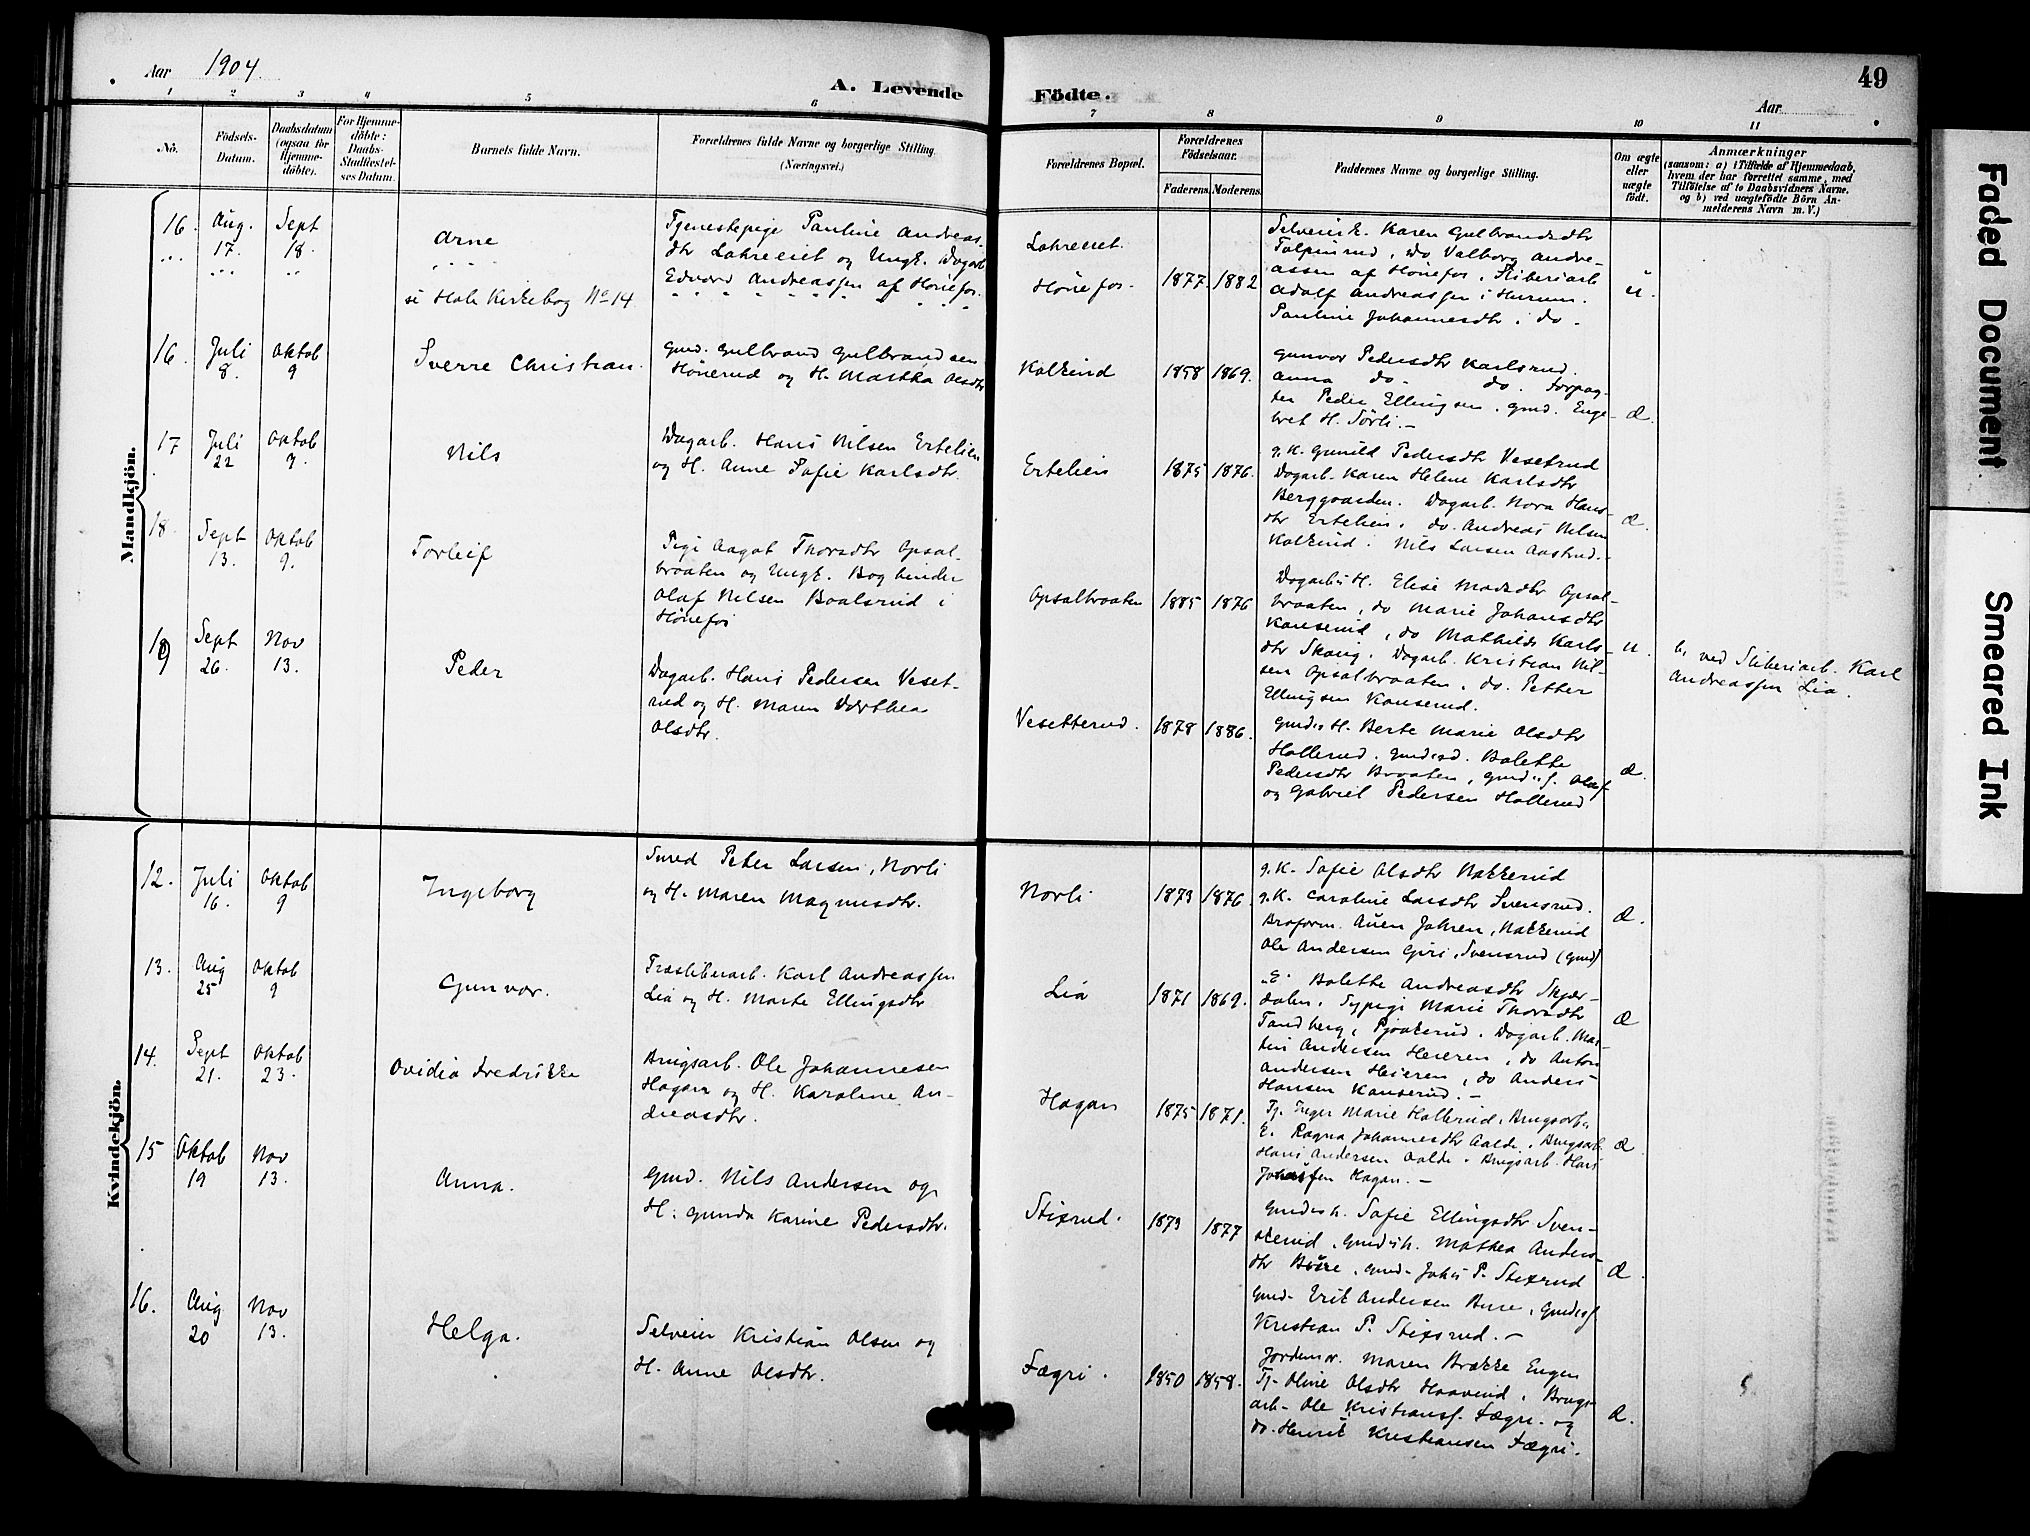 Aar 1904.
A. Levende Födte.
49
Aar
1 2 3 4 5 6 7 8 9 10 11
No.
Födsels-
Datum.
Daabsdatum
(ogsaa for
Hjemme-
döbte).
For Hjemme-
döbte:
Daabs-
Stadfæstel-
ses Datum.
Barnets fulde Navn.
Forældrenes fulde Navne og borgerlige Stilling.
(Næringsvei.)
Forældrenes Bopæl.
Forældrenes
Födselsaar.
Faderens. Moderens.
Faddernes Navne og borgerlige Stilling.
Om ægte
eller
uægte
födt.
Anmærkninger
(saasom: a) i Tilfælde af Hjemmedaab,
hvem der har forrettet samme, med
Tilföielse af to Daabsvidners Navne,
og b) ved uægtefödte Börn An-
melderens Navn m. V.)
Mandkjön.
16. Aug. 17. Sept 18.
Arne
se Hole Kirkebog No 14
Tjenestepige Pauline Andreas-
dtr Lohreeiet og Ungk. Dagarb
Edvard Andreassen af Hönefos.
Lohreeiet.
Hönefos.
1877. 1882
Selveierk. Karen Gulbrandsdtr
Tolpinrud, do Valborg Andre-
assen af Hönefos, Sliberiarb
Adolf Andreassen i Hurum.
Pauline Johannesdtr i do.
u.
16. Juli 8. Oktob 9
Sverre Christian.
Gmd. Gulbrand Gulbrandsen
Hönerud og H. Marthea Olsdtr
Kolkind
1858 1869.
Gunvor Pedersdtr Karlsrud.
Anna do. do. Forpag-
ter Peder Ellingsen. Gmd. Enge-
bret H. Sörli. -
Æ.
17 Juli 22 Oktob 9.
Nils
Dagarb. Hans Nilsen Ertelien
og H. Anne Sofie Karlsdtr.
Ertelien
1875 1876.
g.K. Gunild Pedersdtr Vesetrud
Dagarb. Karen Helene Karlsdtr
Berggaarden. Dagarb. Nora Hans-
dtr Ertelien. do. Andreas Nilsen
Kolkind. Nils Larsen Aastrud. -
Æ.
18. Sept 13. Oktob 9.
Torleif
Pige Aagot Thorsdtr Opsal-
braaten og Ungk. Bogbinder
Olaf Nilsen Boalsrud i
Hönefos
Opsalbraaten
1885 1876
Dagarbs H. Elise Madsdtr Opsal-
braaten, do Marie Johansdtr
Kanserud, do Mathilde Karls-
dtr Skaug. Dagarb. Kristian Nil-
sen Opsalbraaten. do. Petter
Ellingsen Kanserud.
u.
b, ved Sliberiarb. Karl
Andreassen Lia.
19 Sept 26. Nov 13.
Peder
Dagarb. Hans Pedersen Veset-
rud og H. Maren Dorthea
Olsdtr.
Vesetterud.
1878 1886.
Gmds H. Berte Marie Olsdtr
Hollerud, Gmdsd. Bolette
Pedersdtr Braaten, Gmds. Olaf
og Gabriel Pedersen Hollerud
Æ.
Kvindekjön.
12. Juli 16. Oktob 9
Ingeborg
Smed Peter Larsen, Norli
og H. Maren Magnusdtr.
Norli
1873 1876
g.K. Sofie Olsdtr Nakkerud
g.K. Caroline Larsdtr Svensrud.
Broform. Auen Johren, Nakkerud
Ole Andersen Giri, Svensrud (Gmd)
Æ.
13. Aug 25 Oktob 9
Gunvor.
Træsliberarb. Karl Andreassen
Lia og H. Marte Ellingsdtr
Lia
1871 1869.
E. Bolette Andreasdtr Skjær-
dalen. Sypige Marie Thorsdtr
Tandberg, Pjaakerud. Dagarb. Mar-
tin Andersen Heieren, do Anton
Andersen Heieren, do Anders
Hansen Kanserud. -
Æ
14. Sept 21. Oktob 23.
Ovidia Fredrikke
Brugsarb. Ole Johannesen
Hagan og H. Karoline An-
dreasdtr.
Hagan
1875 1871.
Tj. Inger Marie Hollerud, Brugsarb.
E. Ragna Johannesdtr Aalde. Brugsarb.
Hans Andersen Aalde. Brugsarb. Hans
Hagan. -
Æ
15 Oktob 19 Nov 13.
Anna.
Gmd. Nils Andersen og
H. Gunda Karine Pedersdtr.
Stixrud.
1873 1877
Gmdsk. Sofie Ellingsdtr Sven-
skerud, Gmdsk. Mathea Anders-
dtr Bure, Gmd. Johs P. Stixrud
Gmd. Erik Andersen Bure, Gmds
Kristian P. Stixrud. -
Æ.
16. Aug 20 Nov 13.
Helga.
Selveier Kristian Olsen og
H. Anne Olsdtr.
Fægri.
1850 1858.
Jordemor. Maren Brække Engen
Tj. Oline Olsdtr Haavend, Brugs-
arb. Ole Kristians. Fægri. og
do. Henrik Kristiansen Fægri.
Æ.
Faded Document
Smeared Ink